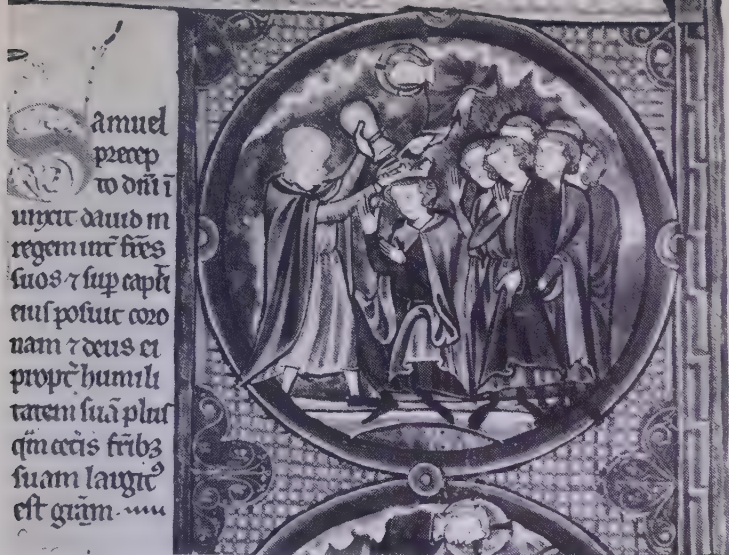 Samuel
precep
to dñi ī
unxit dauid in
regem int̄ fr̄es
suos ⁊ sup̄ capit̄
eius posuit coro
nam ⁊ deus ei
propt̄ humili
tatem suā plus
qm̄ cet̄is fr̄ibꝫ
suam largitꝰ
est gr̄am